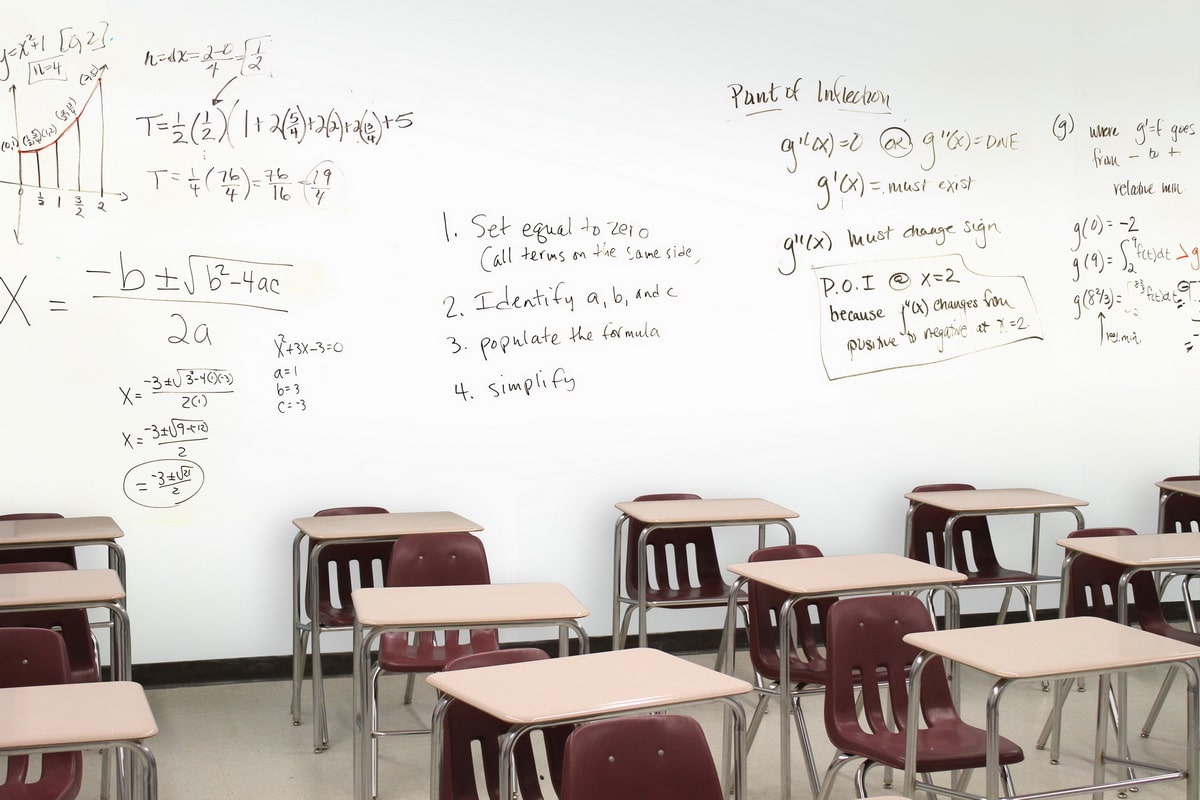 y=x²+1 [0,2]
n=4
0 1/2 1 3/2 2
n=dx=2-0/4=1/2
T=1/2(1/2)(1+2(5/4)+2(2)+2(13/4)+5
T=1/4(76/4)=76/16=19/4
X = -b±√b²-4ac / 2a
x²+3x-3=0
a=1
b=3
c=-3
x= -3±√3²-4(1)(-3) / 2(1)
x= -3±√9+12 / 2
= -3±√21 / 2
1. Set equal to zero
(all terms on the same side,
2. Identify a, b, and c
3. populate the formula
4. simplify
Point of Inflection
g''(x)=0 OR g''(x)=DNE
g'(x)= must exist
g''(x) must change sign
P.O.I @ x=2
because g''(x) changes from
positive to negative at x=2.
(g) where g'=f goes
from - to +
relative min.
g(0)=-2
g(9)=∫₂⁹f(t)dt
g(8⅔)= f(t)dt
rel. min